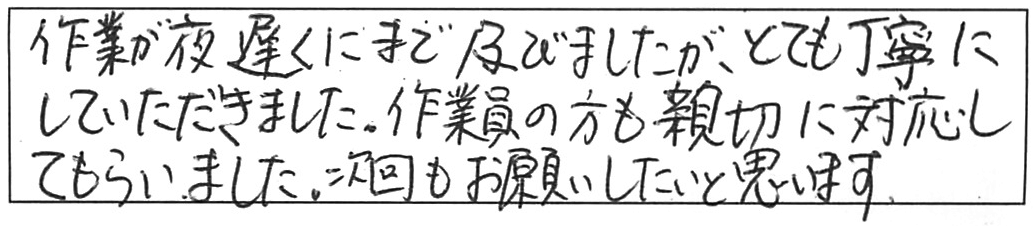 作業が夜遅くにまで及びましたが、とても丁寧に
していただきました。作業員の方も親切に対応し
てもらいました。次回もお願いしたいと思います。